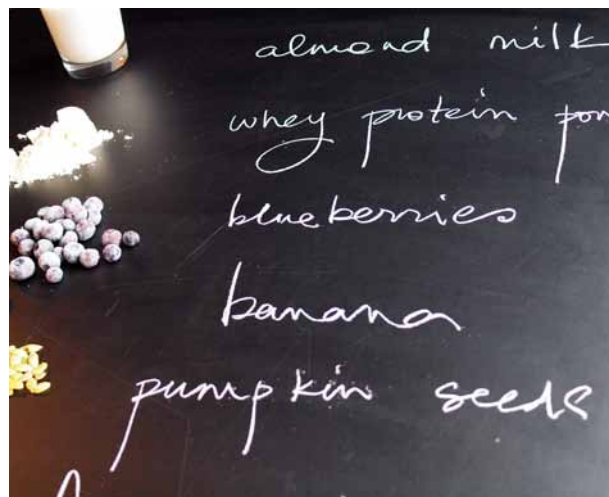 almond milk
whey protein
blueberries
banana
pumpkin seeds